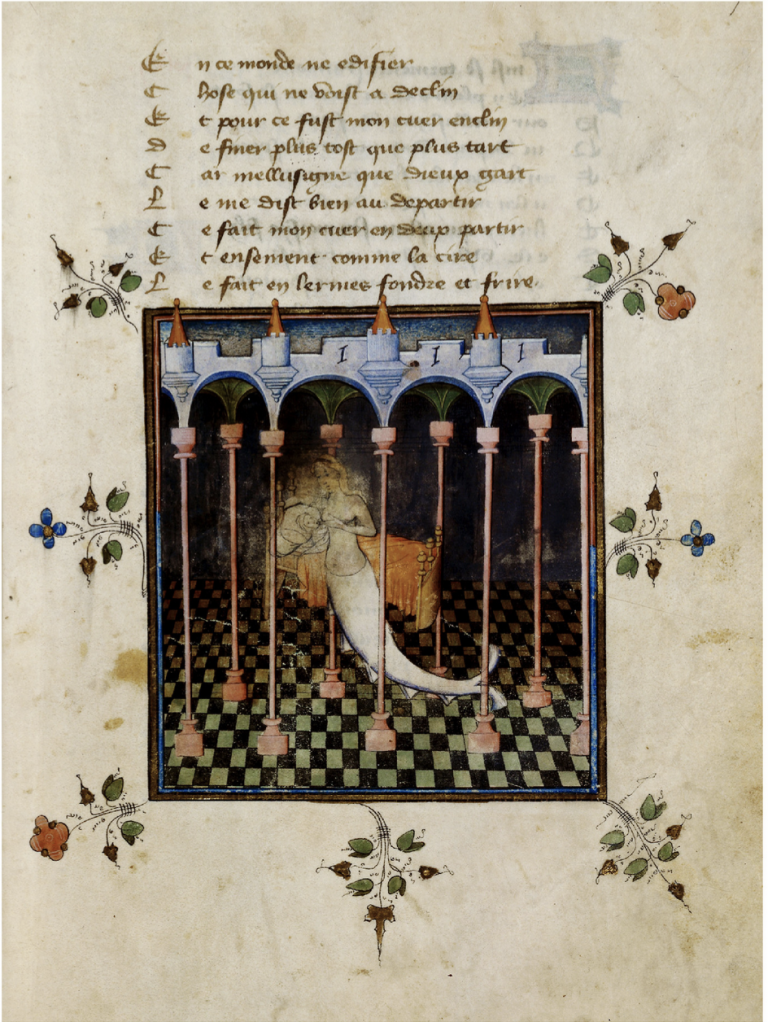 En ce monde ne edifier
Chose qui ne voist a declin
Et pour ce fust mon cuer enclin
De finer plus tost que plus tart
Car mellusigne que dieux gart
Le me dist bien au departir
Ce fait mon cuer en deux partir
Et ensement comme la cire
Le fait en lermes fondre et frire.